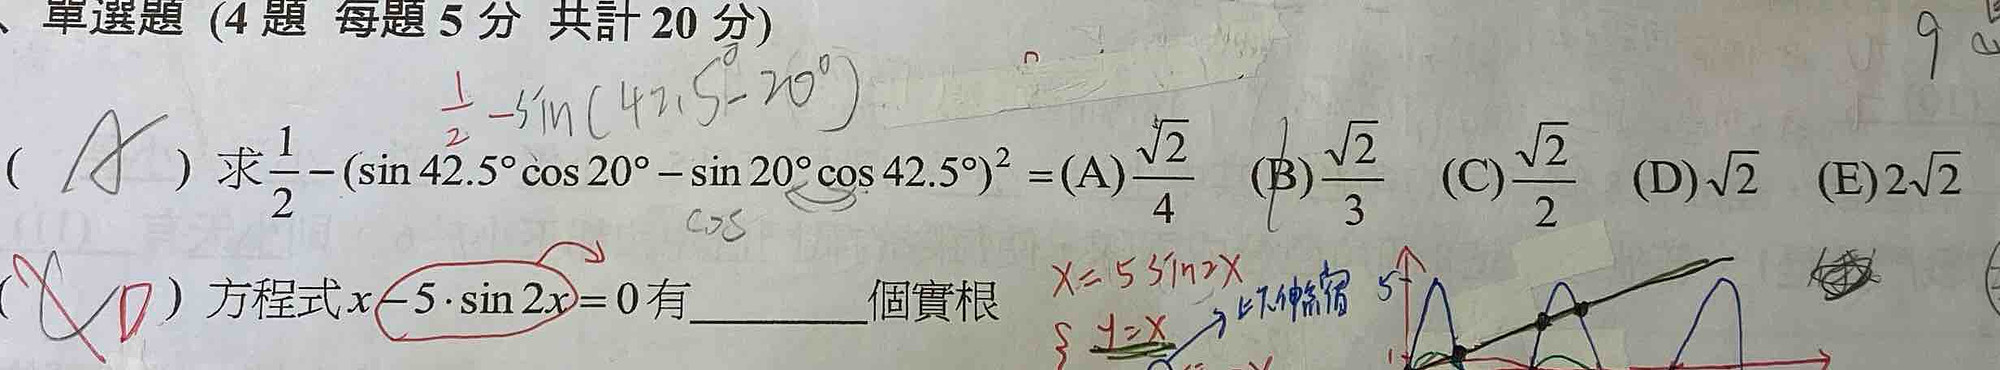 、單選題 (4 題 每題 5 分 共計 20 分)
9
1/2 -sin(42.5°-20°)
( A ) 求 1/2 - (sin 42.5° cos 20° - sin 20° cos 42.5°)² = (A) √2/4 (B) √2/3 (C) √2/2 (D) √2 (E) 2√2
cos
( D ) 方程式 x - 5 · sin 2x = 0 有________個實根
x = 5 sin2x
{ y=x
上下伸縮
5
1